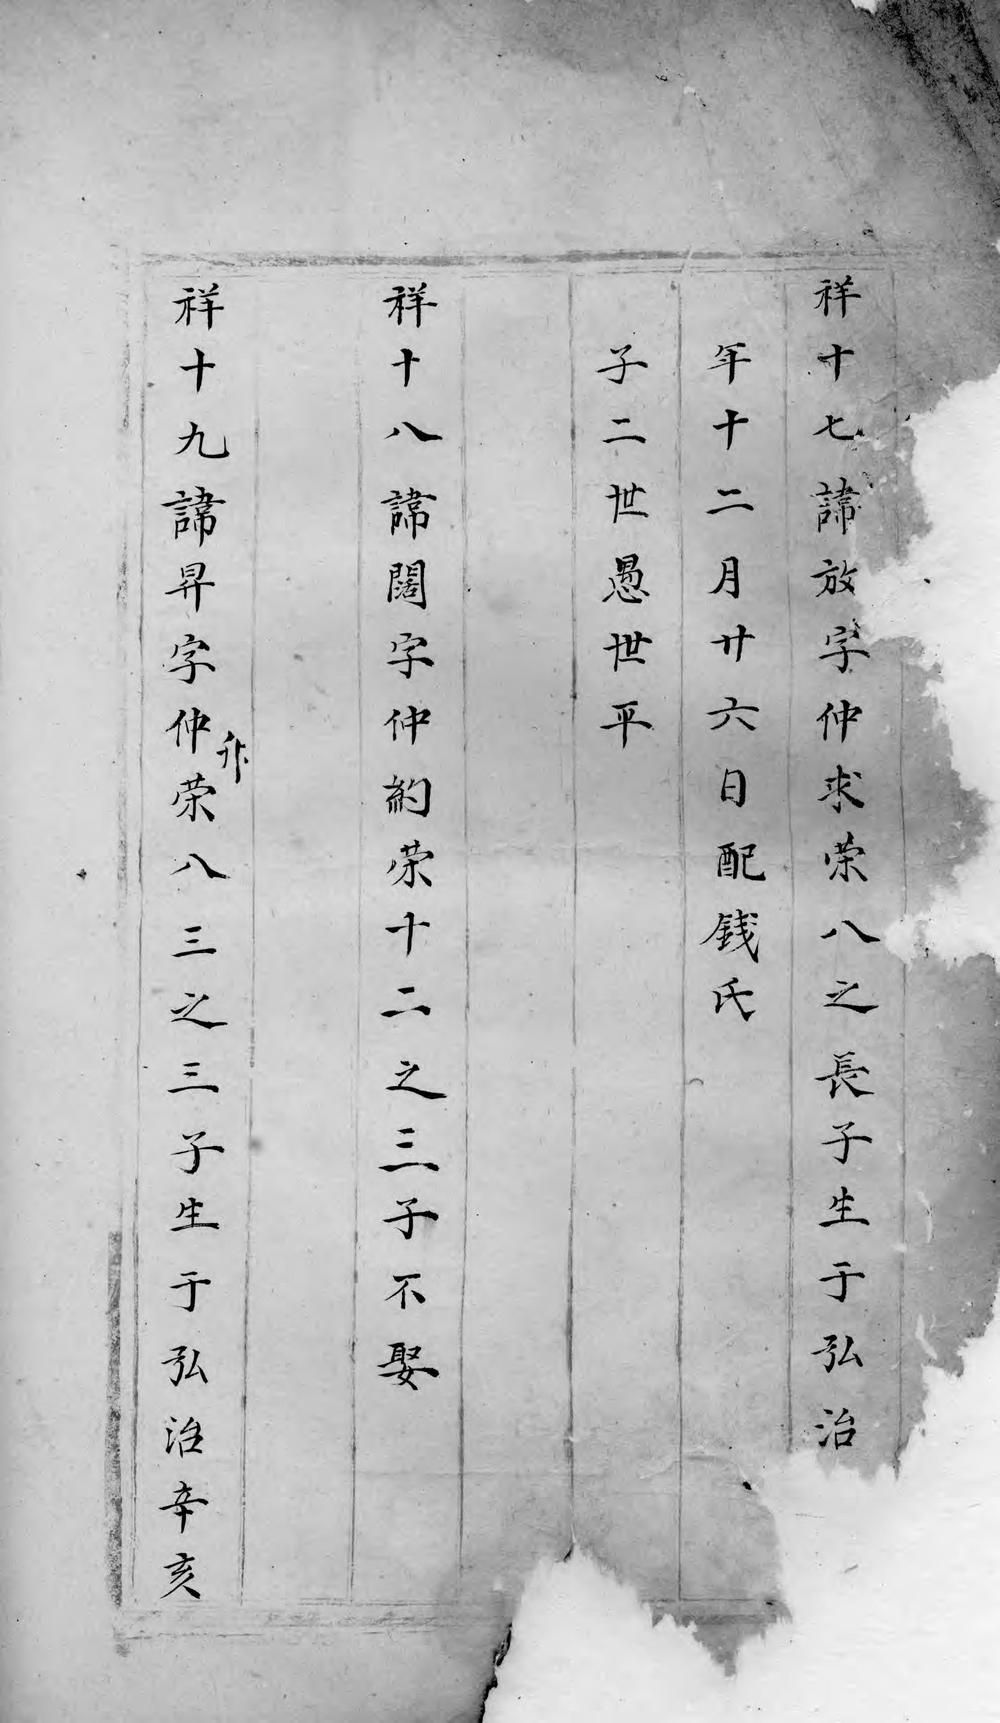 祥十七諱放字仲求荣八之長子生于弘治
年十二月廿六日配錢氏
子二世愚世平
祥十八諱闊字仲約荣十二之三子不娶
祥十九諱昇字仲升荣八三之三子生于弘治辛亥